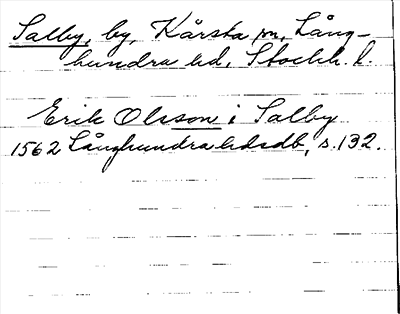 Salby, by, Kårsta sn, Lång-
hundra hd, Stockh. l.
Erik Olsson i Salby
1562 Långhundra hdsdb, s. 132.